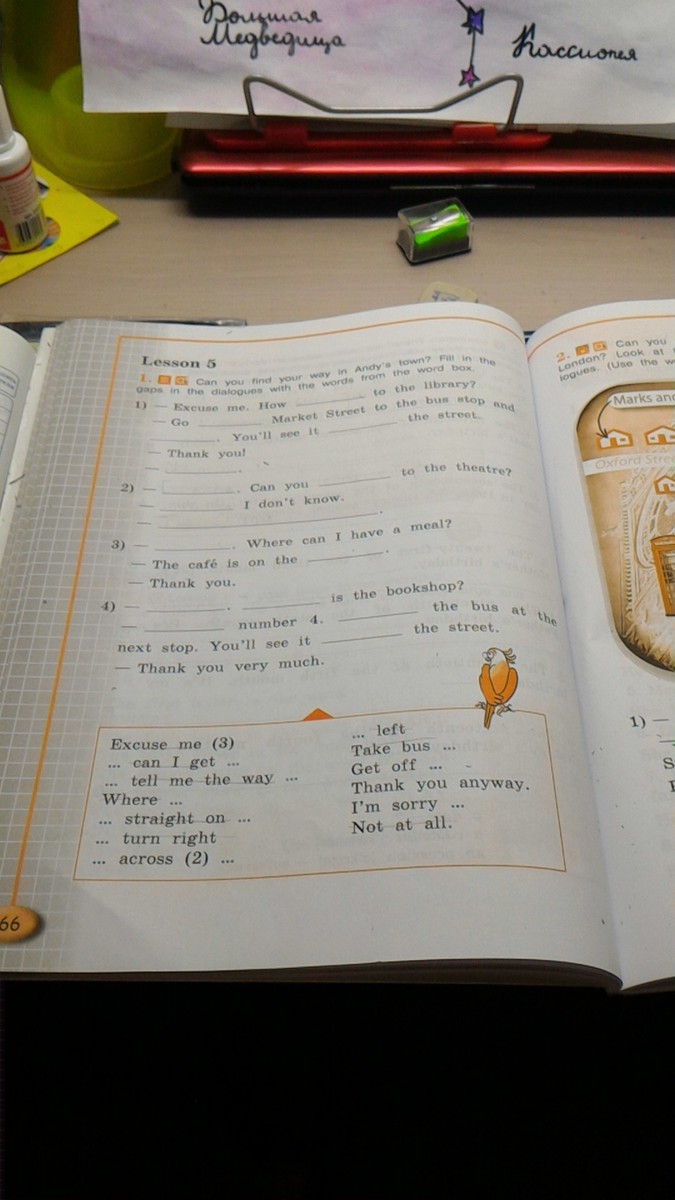 Большая
Медведица
Кассиопея
Lesson 5
1. Can you find your way in Andy's town? Fill in the
gaps in the dialogues with the words from the word box.
1) — Excuse me. How ________ to the library?
— Go ________ Market Street to the bus stop and
________. You'll see it ________ the street.
— Thank you!
— ________.
2) — ________. Can you ________ to the theatre?
— ________ I don't know.
— ________.
3) — ________. Where can I have a meal?
— The café is on the ________.
— Thank you.
4) — ________. ________ is the bookshop?
— ________ number 4. ________ the bus at the
next stop. You'll see it ________ the street.
— Thank you very much.
Excuse me (3)
... can I get ...
... tell me the way ...
Where ...
... straight on ...
... turn right
... across (2) ...
... left
Take bus ...
Get off ...
Thank you anyway.
I'm sorry ...
Not at all.
66
2. Can you
London? Look at
logues. (Use the
Marks and
Oxford Stre
1) —